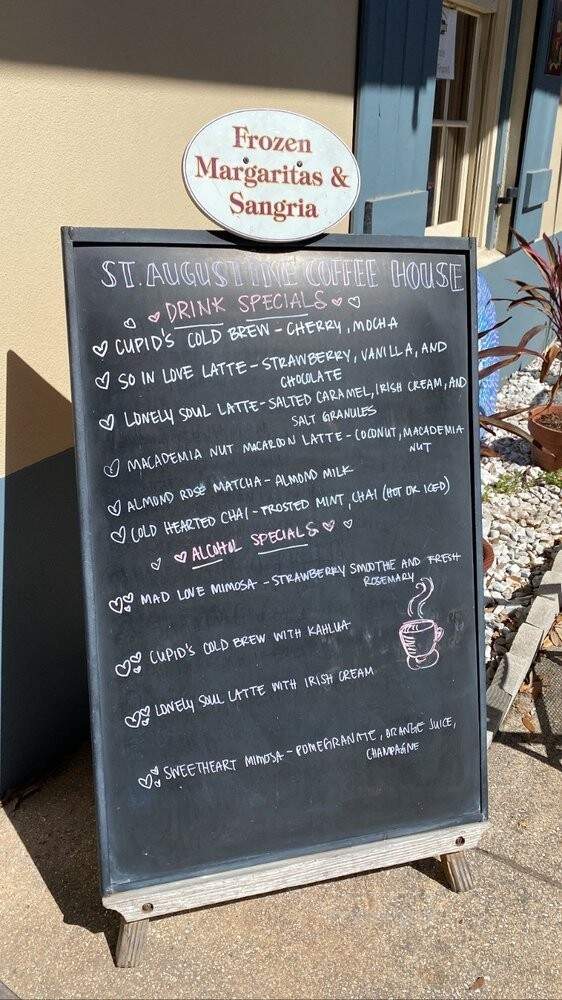 Frozen
Margaritas &
Sangria
ST. AUGUSTINE COFFEE HOUSE
DRINK SPECIALS
CUPID'S COLD BREW - CHERRY, MOCHA
SO IN LOVE LATTE - STRAWBERRY, VANILLA, AND
CHOCOLATE
LONELY SOUL LATTE - SALTED CARAMEL, IRISH CREAM, AND
SALT GRANULES
MACADEMIA NUT MACARON LATTE - COCONUT, MACADEMIA
NUT
ALMOND ROSE MATCHA - ALMOND MILK
COLD HEARTED CHAI - FROSTED MINT, CHAI (HOT OR ICED)
ALCOHOL SPECIALS
MAD LOVE MIMOSA - STRAWBERRY SMOOTHIE AND FRESH
ROSEMARY
CUPID'S COLD BREW WITH KAHLUA
LONELY SOUL LATTE WITH IRISH CREAM
SWEETHEART MIMOSA - POMEGRANATE, ORANGE JUICE,
CHAMPAGNE